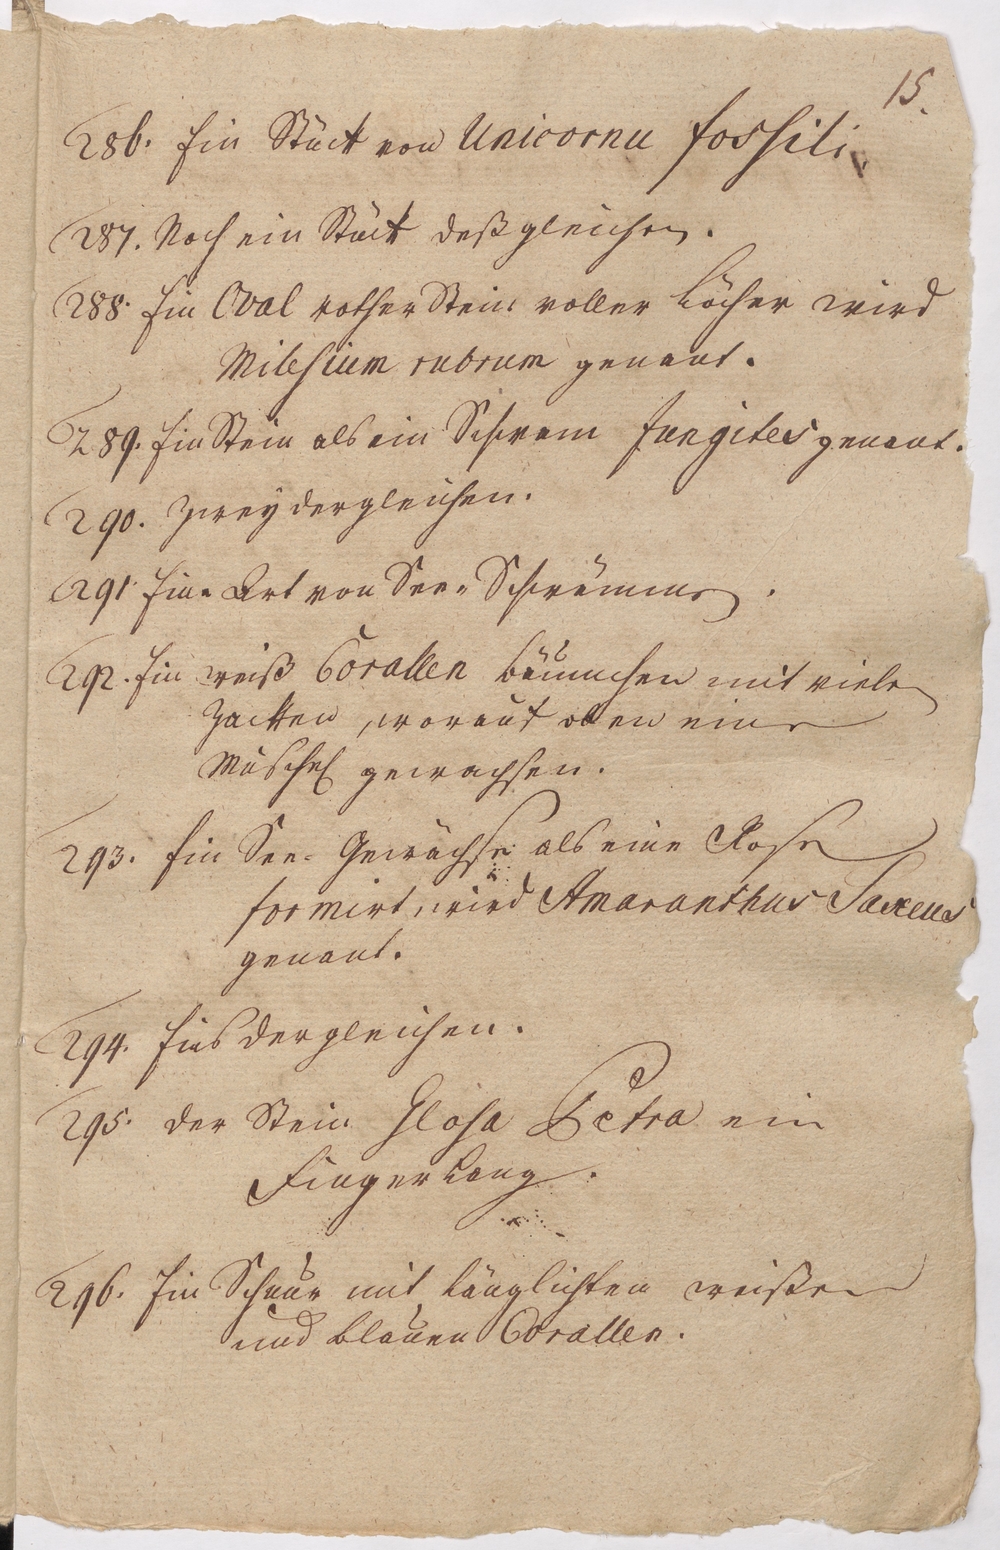 15.
286. Ein Stück von Unicornu fossili.
287. Noch ein Stück deßgleichen.
288. Ein Oval rother Stein voller Löcher wird
Milesium rubrum genant.
289. Ein Stein als ein Schwam fungites genant.
290. Zwey dergleichen.
291. Eine Art von See-Schwämmen.
292. Ein weiß Corallen bäumchen mit vielen
Zacken, worauf oben eine
Muschel gewachsen.
293. Ein See-Gewächse als eine Rose
formirt, wird Amaranthus Saxeus
genant.
294. Eins dergleichen.
295. der Stein Glosa Petra ein
Finger lang.
296. Ein Schnur mit länglichten weißen
und blauen Corallen.